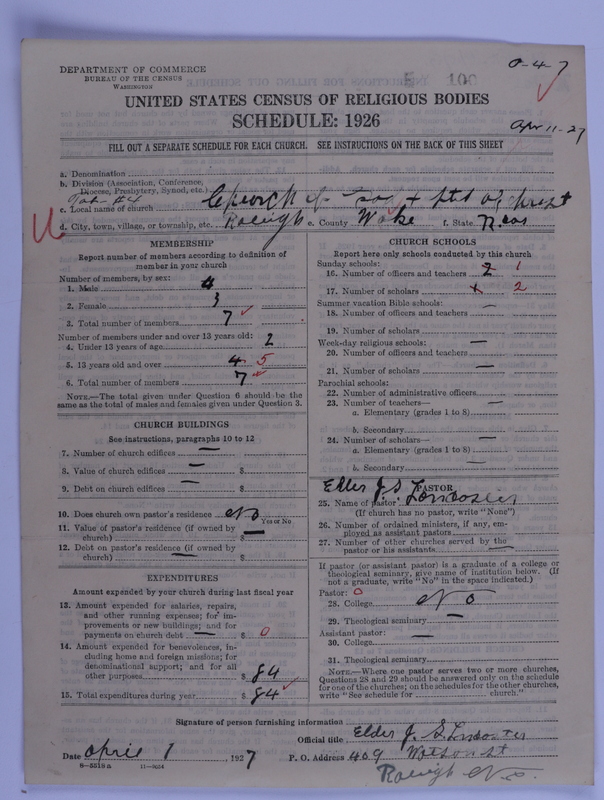 DEPARTMENT OF COMMERCE
BUREAU OF THE CENSUS
WASHINGTON
0-4-7
UNITED STATES CENSUS OF RELIGIOUS BODIES
SCHEDULE: 1926
Apr 11-27
FILL OUT A SEPARATE SCHEDULE FOR EACH CHURCH. SEE INSTRUCTIONS ON THE BACK OF THIS SHEET
a. Denomination
b. Division (Association, Conference, Diocese, Presbytery, Synod, etc.)
c. Local name of church Church of
d. City, town, village, or township, etc. Raleigh e. County Wake f. State N. Car
MEMBERSHIP
Report number of members according to definition of
member in your church
Number of members, by sex:
1. Male 4
2. Female 3
3. Total number of members 7
Number of members under and over 13 years old:
4. Under 13 years of age 2
5. 13 years old and over 4 5
6. Total number of members 7
NOTE.—The total given under Question 6 should be the
same as the total of males and females given under Question 3.
CHURCH BUILDINGS
See instructions, paragraphs 10 to 12
7. Number of church edifices —
8. Value of church edifices — $
9. Debt on church edifices — $
10. Does church own pastor's residence No
Yes or No
11. Value of pastor's residence (if owned by
church) $ —
12. Debt on pastor's residence (if owned by
church) — $
EXPENDITURES
Amount expended by your church during last fiscal year
13. Amount expended for salaries, repairs,
and other running expenses; for improvements
or new buildings; and for
payments on church debt — $ 0
14. Amount expended for benevolences, including
home and foreign missions; for
denominational support; and for all
other purposes $ 84
15. Total expenditures during year $ 84
CHURCH SCHOOLS
Report here only schools conducted by this church
Sunday schools:
16. Number of officers and teachers 2 1
17. Number of scholars 2
Summer vacation Bible schools:
18. Number of officers and teachers —
19. Number of scholars
Week-day religious schools: —
20. Number of officers and teachers
21. Number of scholars —
Parochial schools:
22. Number of administrative officers
23. Number of teachers— —
a. Elementary (grades 1 to 8)
b. Secondary
24. Number of scholars— —
a. Elementary (grades 1 to 8)
b. Secondary —
PASTOR
25. Name of pastor Elder J. S.
(If church has no pastor, write "None")
26. Number of ordained ministers, if any, employed
as assistant pastors
27. Number of other churches served by the
pastor or his assistants —
If pastor (or assistant pastor) is a graduate of a college or
theological seminary, give name of institution below. (If
not a graduate, write "No" in the space indicated.)
Pastor: 0
28. College No
29. Theological seminary —
Assistant pastor:
30. College —
31. Theological seminary
NOTE.—Where one pastor serves two or more churches,
Questions 28 and 29 should be answered only on the schedule
for one of the churches; on the schedules for the other churches,
write "See schedule for church."
Signature of person furnishing information
Official title Elder J. S.
Date April 1, 1927 P. O. Address 409 Watson st
8—5518 a
Raleigh N.C.